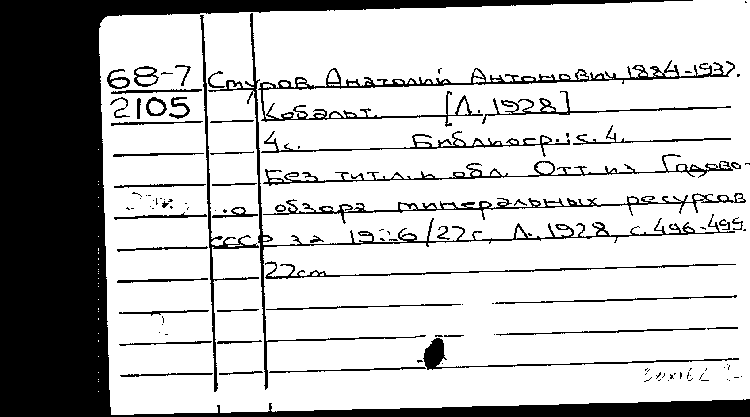 68-7 Стуров Анатолий Антонович, 1884-1937.
2105 Кобальт. [Л., 1928]
4с. Библиогр.: с. 4.
Без тит.л. и обл. Отт. из Годово-
го обзора минеральных ресурсов
СССР за 1926/27г, Л., 1928, с. 496-499.
27cm
2